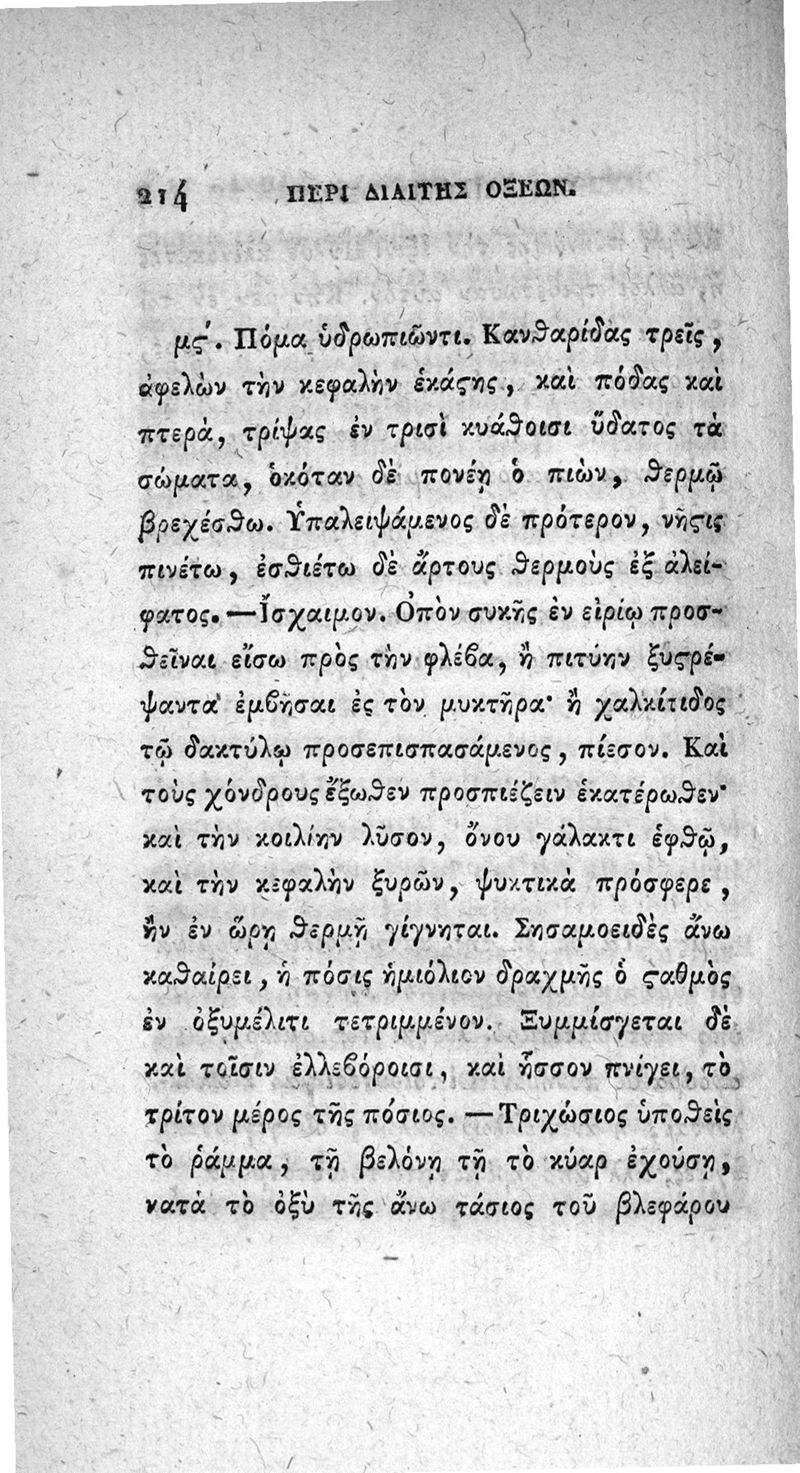 214 ΠΕΡΙ ΔΙΑΙΤΗΣ ΟΞΕΩΝ.
μϛ'. Πόμα ὑδρωπιῶντι. Κανϑαρίδας τρεῖς,
ἀφελὼν τὴν κεφαλὴν ἑκάϛης, καὶ πόδας καὶ
πτερὰ, τρίψας ἐν τρισὶ κυάϑοισι ὕδατος τὰ
σώματα, ὁκόταν δὲ πονέῃ ὁ πιὼν, ϑερμῷ
βρεχέσϑω. Ὑπαλειψάμενος δὲ πρότερον, νῆϛις
πινέτω, ἐσϑιέτω δὲ ἄρτους ϑερμοὺς ἐξ ἀλεί-
φατος.—Ἴσχαιμον. Ὀπὸν συκῆς ἐν εἰρίῳ προσ-
ϑεῖναι εἴσω πρὸς τὴν φλέβα, ἢ πιτύην ξυϛρέ-
ψαντα ἐμβῆσαι ἐς τὸν μυκτῆρα· ἢ χαλκίτιδος
τῷ δακτύλῳ προσεπισπασάμενος, πίεσον. Καὶ
τοὺς χόνδρους ἔξωϑεν προσπιέζειν ἑκατέρωϑεν·
καὶ τὴν κοιλίην λῦσον, ὄνου γάλακτι ἑφϑῷ,
καὶ τὴν κεφαλὴν ξυρῶν, ψυκτικὰ πρόσφερε,
ἢν ἐν ὥρῃ ϑερμῇ γίγνηται. Σησαμοειδὲς ἄνω
καϑαίρει, ἡ πόσις ἡμιόλιον δραχμῆς ὁ ϛαθμὸς
ἐν ὀξυμέλιτι τετριμμένον. Ξυμμίσγεται δὲ
καὶ τοῖσιν ἐλλεβόροισι, καὶ ἧσσον πνίγει, τὸ
τρίτον μέρος τῆς πόσιος. —Τριχώσιος ὑποϑεὶς
τὸ ῥάμμα, τῇ βελόνῃ τῇ τὸ κύαρ ἐχούσῃ,
κατὰ τὸ ὀξὺ τῆς ἄνω τάσιος τοῦ βλεφάρου